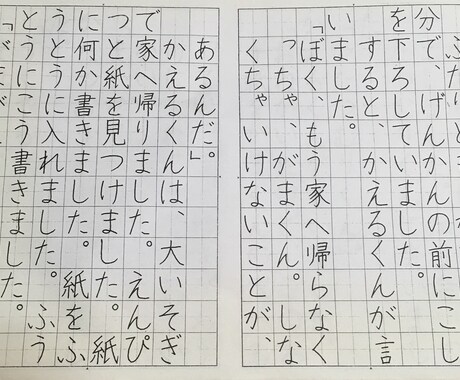 分で、げんかんの前にこし
を下ろしていました。
すると、かえるくんが言
いました。
「ぼく、もう家へ帰らなく
っちゃ、がまくん。しな
くちゃいけないことが、
あるんだ。」
かえるくんは、大いそぎ
で家へ帰りました。えんぴ
つと紙を見つけました。紙
に何か書きました。紙をふ
うとうに入れました。ふう
とうにこう書きました。
「がまが